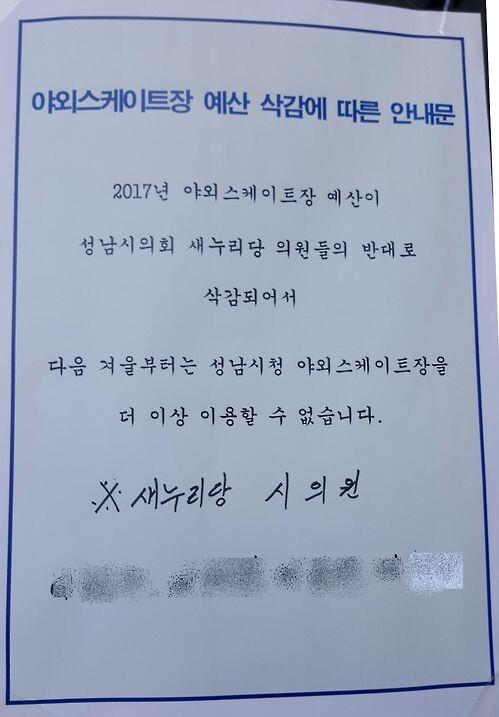 야외스케이트장 예산 삭감에 따른 안내문
2017년 야외스케이트장 예산이
성남시의회 새누리당 의원들의 반대로
삭감되어서
다음 겨울부터는 성남시청 야외스케이트장을
더 이상 이용할 수 없습니다.
※ 새누리당 시의원